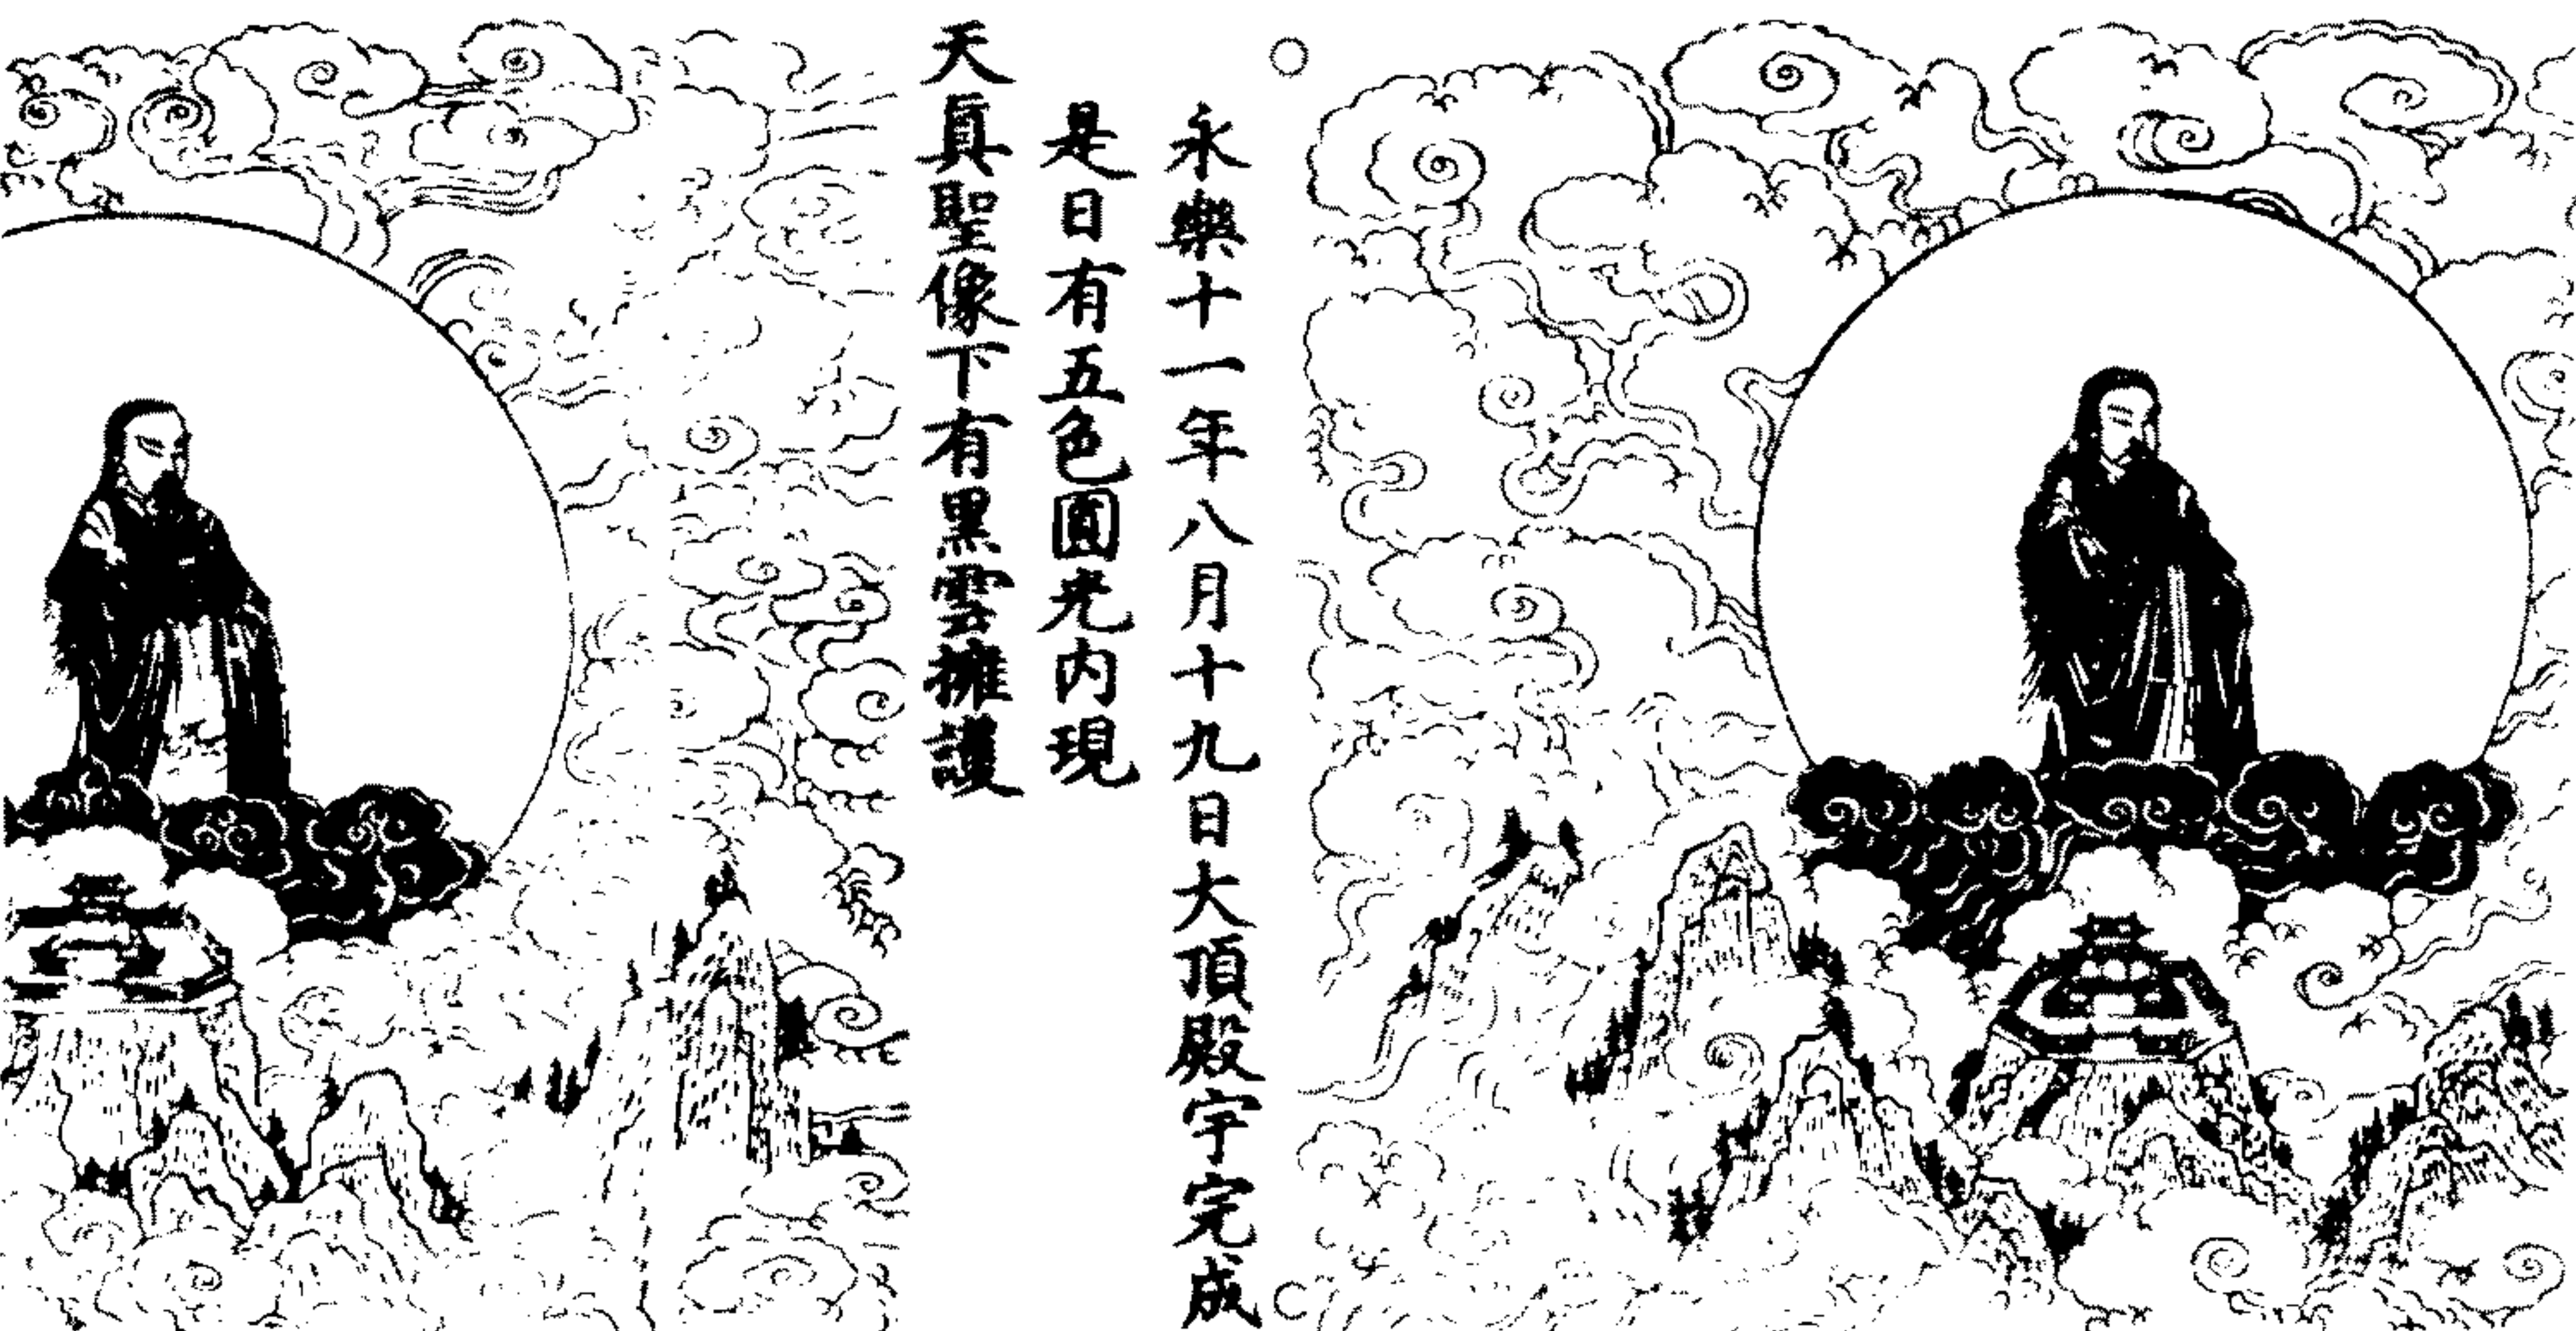 永樂十一年八月十九日大頂殿宇完成
是日有五色圓光内現
天真聖像下有黑雲擁護